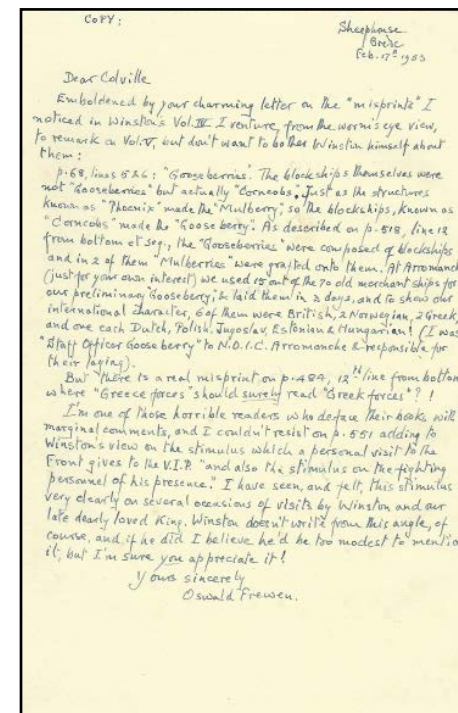 COPY:
Sheephouse
Brede
Feb. 17th 1953
Dear Colville
Emboldened by your charming letter on the "misprints" I
noticed in Winston's Vol. IV I venture, from the worm's eye view,
to remark on Vol. V, but don't want to bother Winston himself about
them:
p. 68, lines 5 & 6: "Gooseberries". The blockships themselves were
not "Gooseberries" but actually "Corncobs". Just as the structures
known as "Phoenix" made the "Mulberry", so the blockships, known as
"Corncobs" made the "Gooseberry". As described on p. 518, line 12
from bottom et seq., the "Gooseberries" were composed of blockships
and in 2 of them "Mulberries" were grafted onto them. At Arromanch
(just for your own interest) we used 15 out of the 70 old merchant ships for
our preliminary "Gooseberry", & laid them in 2 days, and to show our
international character, 6 of them were British, 2 Norwegian, 2 Greek,
and one each Dutch, Polish, Jugoslav, Estonian & Hungarian! (I was
"Staff Officer Gooseberry" to N.O.I.C. Arromanche & responsible for
their laying).
But there is a real misprint on p. 484, 12th line from bottom
where "Greece forces" should surely read "Greek forces"?!
I'm one of those horrible readers who deface their books with
marginal comments, and I couldn't resist on p. 551 adding to
Winston's view on the stimulus which a personal visit to the
Front gives to the V.I.P. "and also the stimulus on the fighting
personnel of his presence." I have seen, and felt, this stimulus
very clearly on several occasions of visits by Winston and our
late dearly loved King. Winston doesn't write from this angle, of
course, and if he did I believe he'd be too modest to mentio
it, but I'm sure you appreciate it!
Yours sincerely
Oswald Frewen.